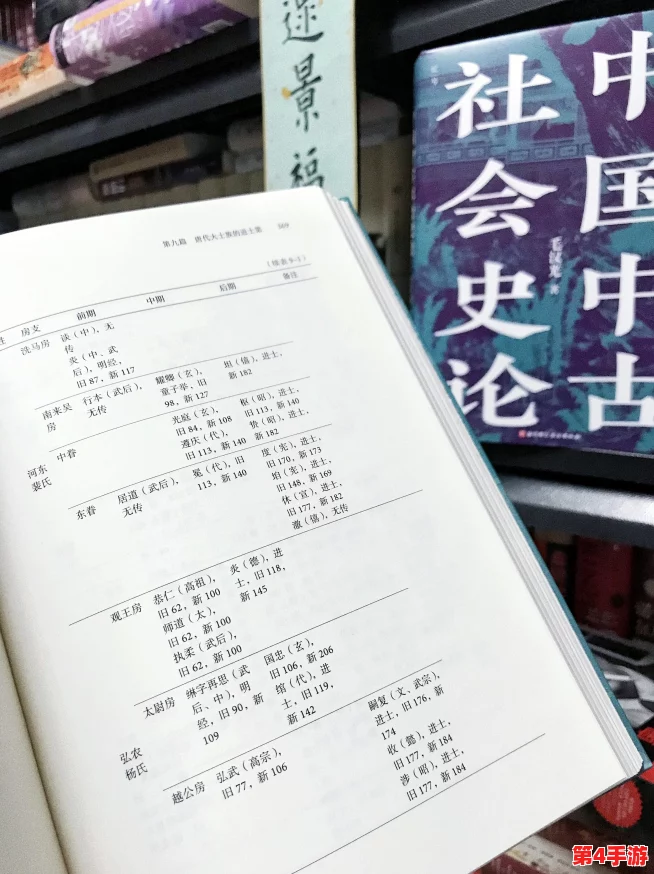 景
福
中国中古
社会史论
毛汉光 著
第九篇 唐代大士族的进士第
(续表9-1)
房支 前期 中期 后期 备注
洗马房 谈(中),无
传
炎(中、武
后),明经,
旧87,新117
南来吴
房
行本(武后),
无传
耀卿(玄),
童子举,旧
98,新127
坦(僖),进士,
新182
河东
裴氏
中眷
光庭(玄),
旧84,新108
遵庆(代),
旧113,新140
枢(昭),进士,
旧113,新140
贽(昭),进士,
新182
东眷
居道(武后),
无传
冕(代),旧
113,新140
度(宪),进士,
旧170,新173
垍(宪),进士,
旧148,新169
休(宣),进士,
旧177,新182
澈(僖),无传
弘农
杨氏
观王房
恭仁(高祖),
旧62,新100
师道(太),
旧62,新100
执柔(武后),
旧62,新100
炎(德),进
士,旧118,
新145
太尉房
綝字再思(武
后、中),明
经,旧90,新
109
国忠(玄),
旧106,新206
绾(代),进
士,旧119,
新142
嗣复(文、武宗),
进士,旧176,新
174
收(懿),进士,
旧177,新184
涉(昭),进士,
旧177,新184
越公房
弘武(高宗),
旧77,新106
第4手游